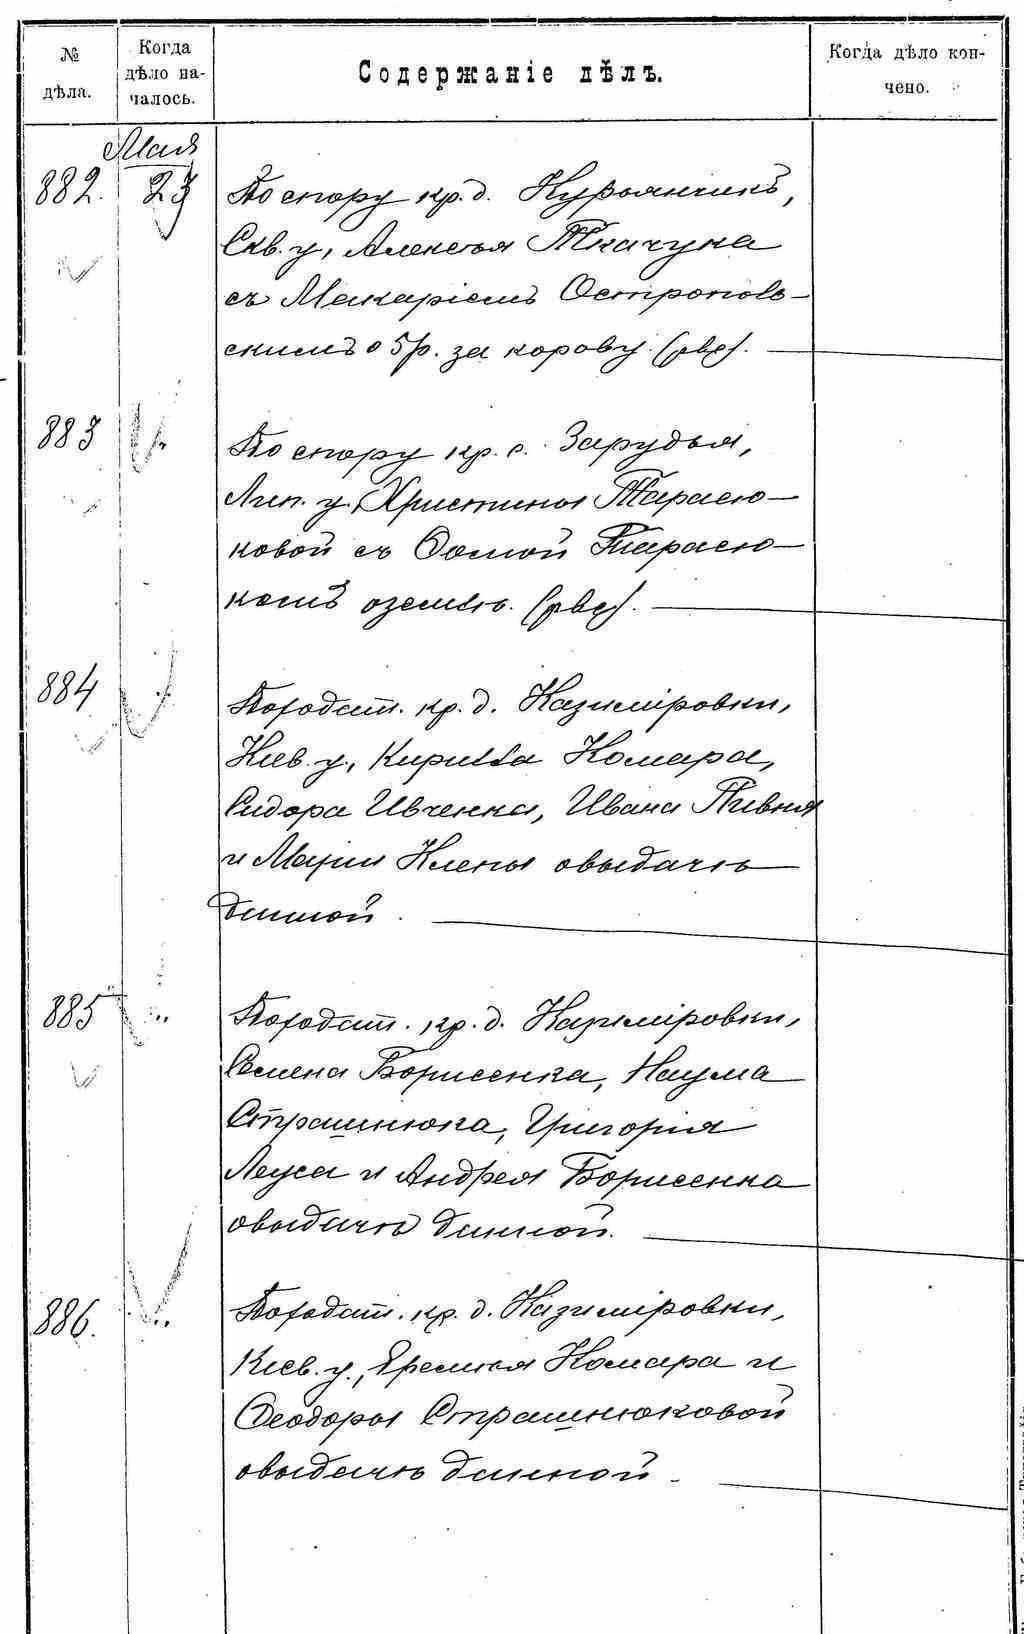 № дѣла.
Когда дѣло на-чалось.
Содержаніе дѣлъ.
Когда дѣло кон-чено.
Мая
882. 23 По спору кр. д. Курьянчикъ,
Скв. у, Алексѣя Ткачука
съ Макаріемъ Остропов-
скимъ о 5 р. за корову.
883 По спору кр. с. Зарудья,
Лип. у. Христины Тарасю-
ковой съ Фомой Тарасю-
комъ о землѣ.
884 По ходат. кр. д. Казиміровки,
Кіев. у., Кирилла Комара,
Сидора Ивченка, Ивана Пивня
и Маріи Клены о выдачѣ
данной.
885 По ходат. кр. д. Казиміровки,
Семена Борисенка, Наума
Страшнюка, Григорія
Леуса и Андрея Борисенка
о выдачѣ данной.
886. По ходат. кр. д. Казиміровки,
Кіев. у., Еремѣя Комара и
Феодоры Страшнюковой
о выдачѣ данной.